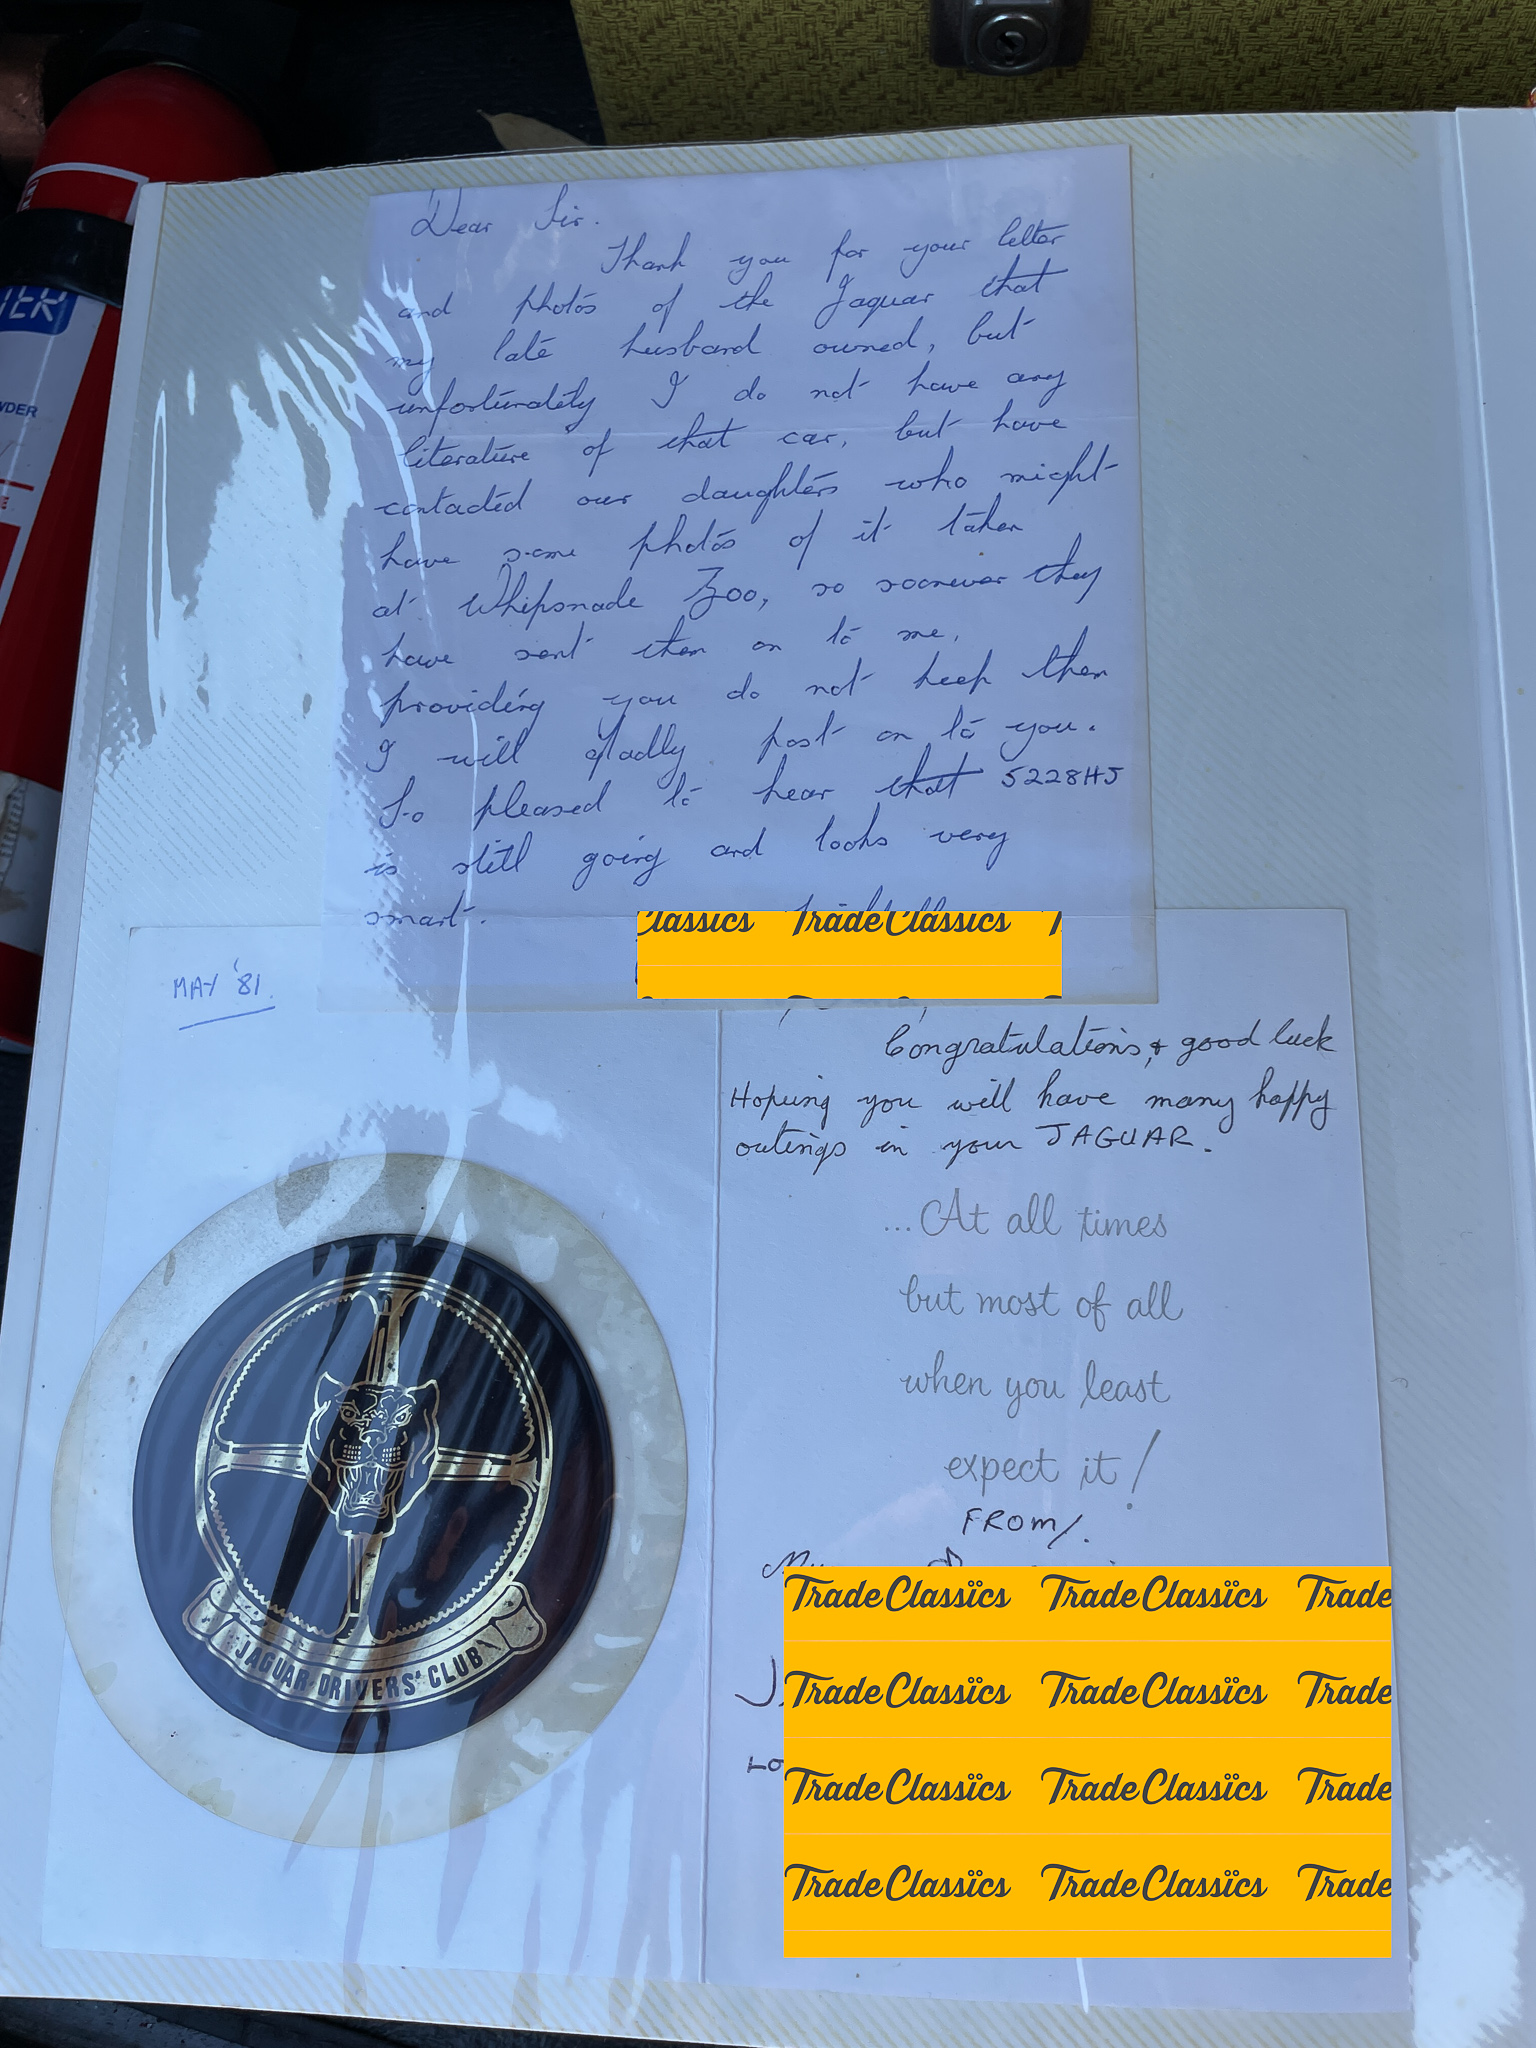 Dear Sir.
Thank you for your letter
and photos of the Jaguar that
my late husband owned, but
unfortunately I do not have any
literature of that car, but have
contacted our daughters who might
have some photos of it taken
at Whipsnade Zoo, so soonever they
have sent them on to me,
providing you do not keep them
I will gladly post on to you.
So pleased to hear that 5228HJ
is still going and looks very
smart.
Classics TradeClassics T
MAY '81.
Congratulations, & good luck
Hoping you will have many happy
outings in your JAGUAR.
...At all times
but most of all
when you least
expect it!
FROM/.
JAGUAR DRIVERS' CLUB
TradeClassics TradeClassics Trade
TradeClassics TradeClassics Trade
TradeClassics TradeClassics Trade
TradeClassics TradeClassics Trade